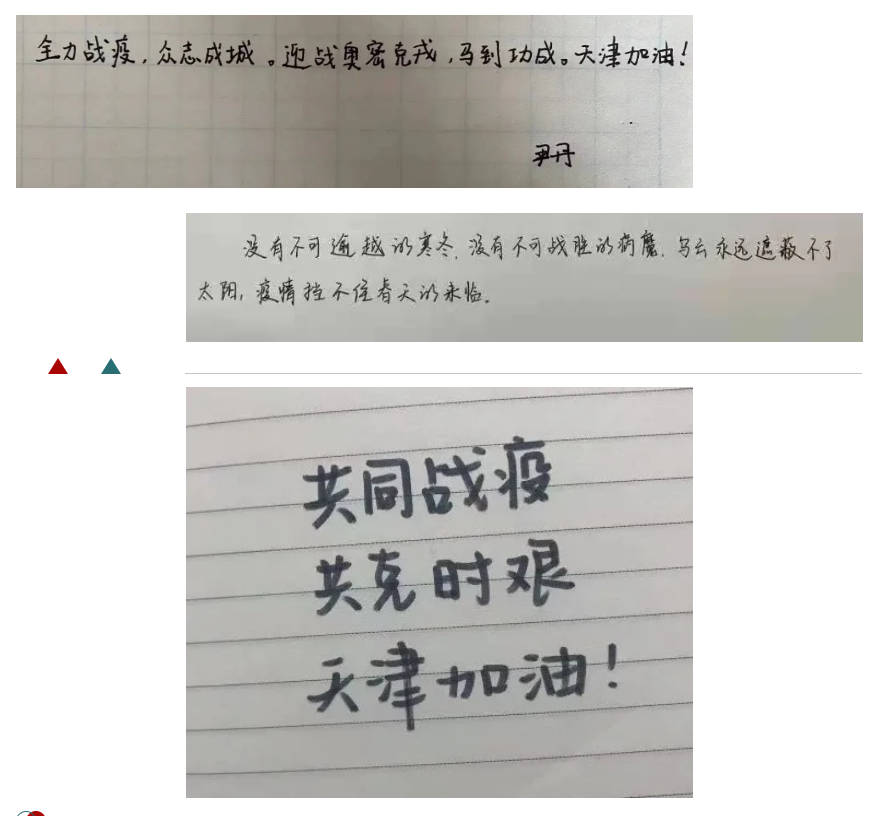 全力战疫，众志成城。迎战奥密克戎，马到功成。天津加油！
尹丹
没有不可逾越的寒冬，没有不可战胜的病魔，乌云永远遮蔽不了
太阳，疫情挡不住春天的来临。
共同战疫
共克时艰
天津加油！